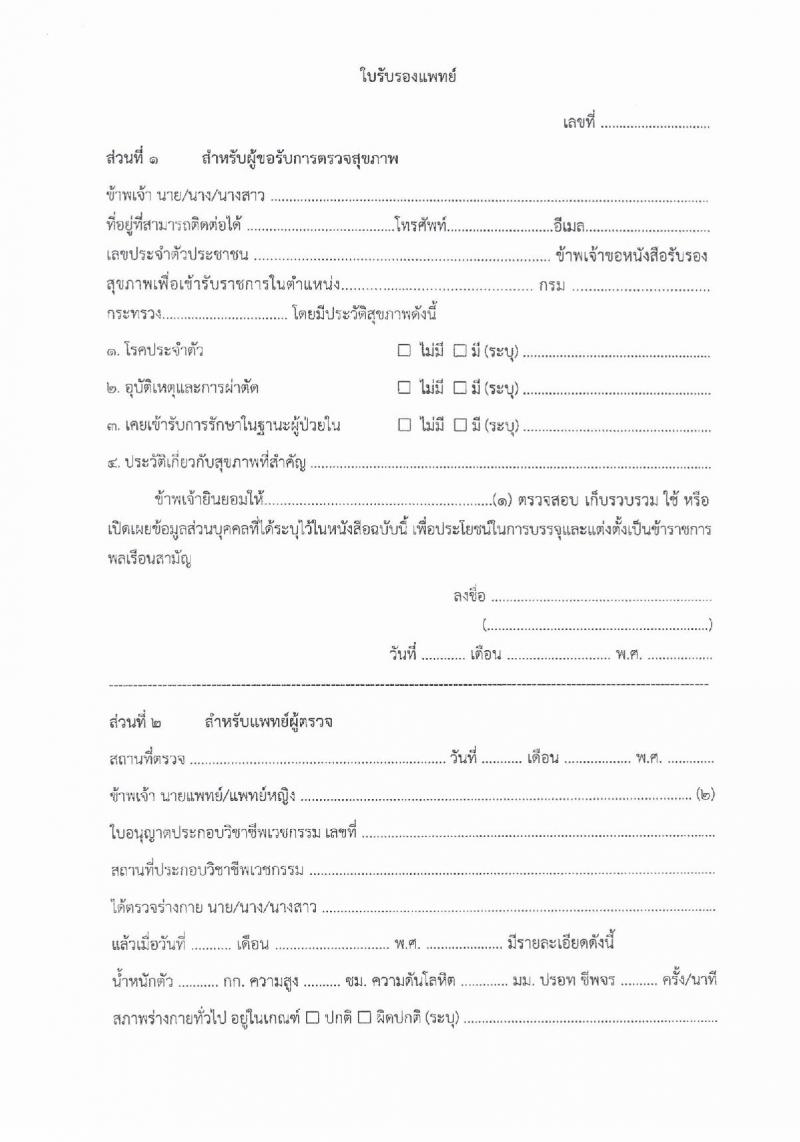 ใบรับรองแพทย์
เลขที่ .............................
ส่วนที่ ๑ สำหรับผู้ขอรับการตรวจสุขภาพ
ข้าพเจ้า นาย/นาง/นางสาว ....................................................................................................................
ที่อยู่ที่สามารถติดต่อได้ .......................................โทรศัพท์............................อีเมล.................................
เลขประจำตัวประชาชน ............................................................................... ข้าพเจ้าขอหนังสือรับรอง
สุขภาพเพื่อเข้ารับราชการในตำแหน่ง................................................... กรม .....................................
กระทรวง.................................. โดยมีประวัติสุขภาพดังนี้
๑. โรคประจำตัว ☐ ไม่มี ☐ มี (ระบุ) ..................................................
๒. อุบัติเหตุและการผ่าตัด ☐ ไม่มี ☐ มี (ระบุ) ..................................................
๓. เคยเข้ารับการรักษาในฐานะผู้ป่วยใน ☐ ไม่มี ☐ มี (ระบุ) ..................................................
๔. ประวัติเกี่ยวกับสุขภาพที่สำคัญ ..........................................................................................................
ข้าพเจ้ายินยอมให้.............................................................(๑) ตรวจสอบ เก็บรวบรวม ใช้ หรือ
เปิดเผยข้อมูลส่วนบุคคลที่ได้ระบุไว้ในหนังสือฉบับนี้ เพื่อประโยชน์ในการบรรจุและแต่งตั้งเป็นข้าราชการ
พลเรือนสามัญ
ลงชื่อ ...........................................................
(...........................................................)
วันที่ ............ เดือน ............................ พ.ศ. ..................
--------------------------------------------------------------------------------
ส่วนที่ ๒ สำหรับแพทย์ผู้ตรวจ
สถานที่ตรวจ .................................................................... วันที่ ........... เดือน .................. พ.ศ. .............
ข้าพเจ้า นายแพทย์/แพทย์หญิง ........................................................................................................ (๒)
ใบอนุญาตประกอบวิชาชีพเวชกรรม เลขที่ ..............................................................................................
สถานที่ประกอบวิชาชีพเวชกรรม ............................................................................................................
ได้ตรวจร่างกาย นาย/นาง/นางสาว .........................................................................................................
แล้วเมื่อวันที่ ........... เดือน ............................... พ.ศ. ..................... มีรายละเอียดดังนี้
น้ำหนักตัว ........... กก. ความสูง .......... ซม. ความดันโลหิต ............. มม. ปรอท ชีพจร .......... ครั้ง/นาที
สภาพร่างกายทั่วไป อยู่ในเกณฑ์ ☐ ปกติ ☐ ผิดปกติ (ระบุ) ....................................................................